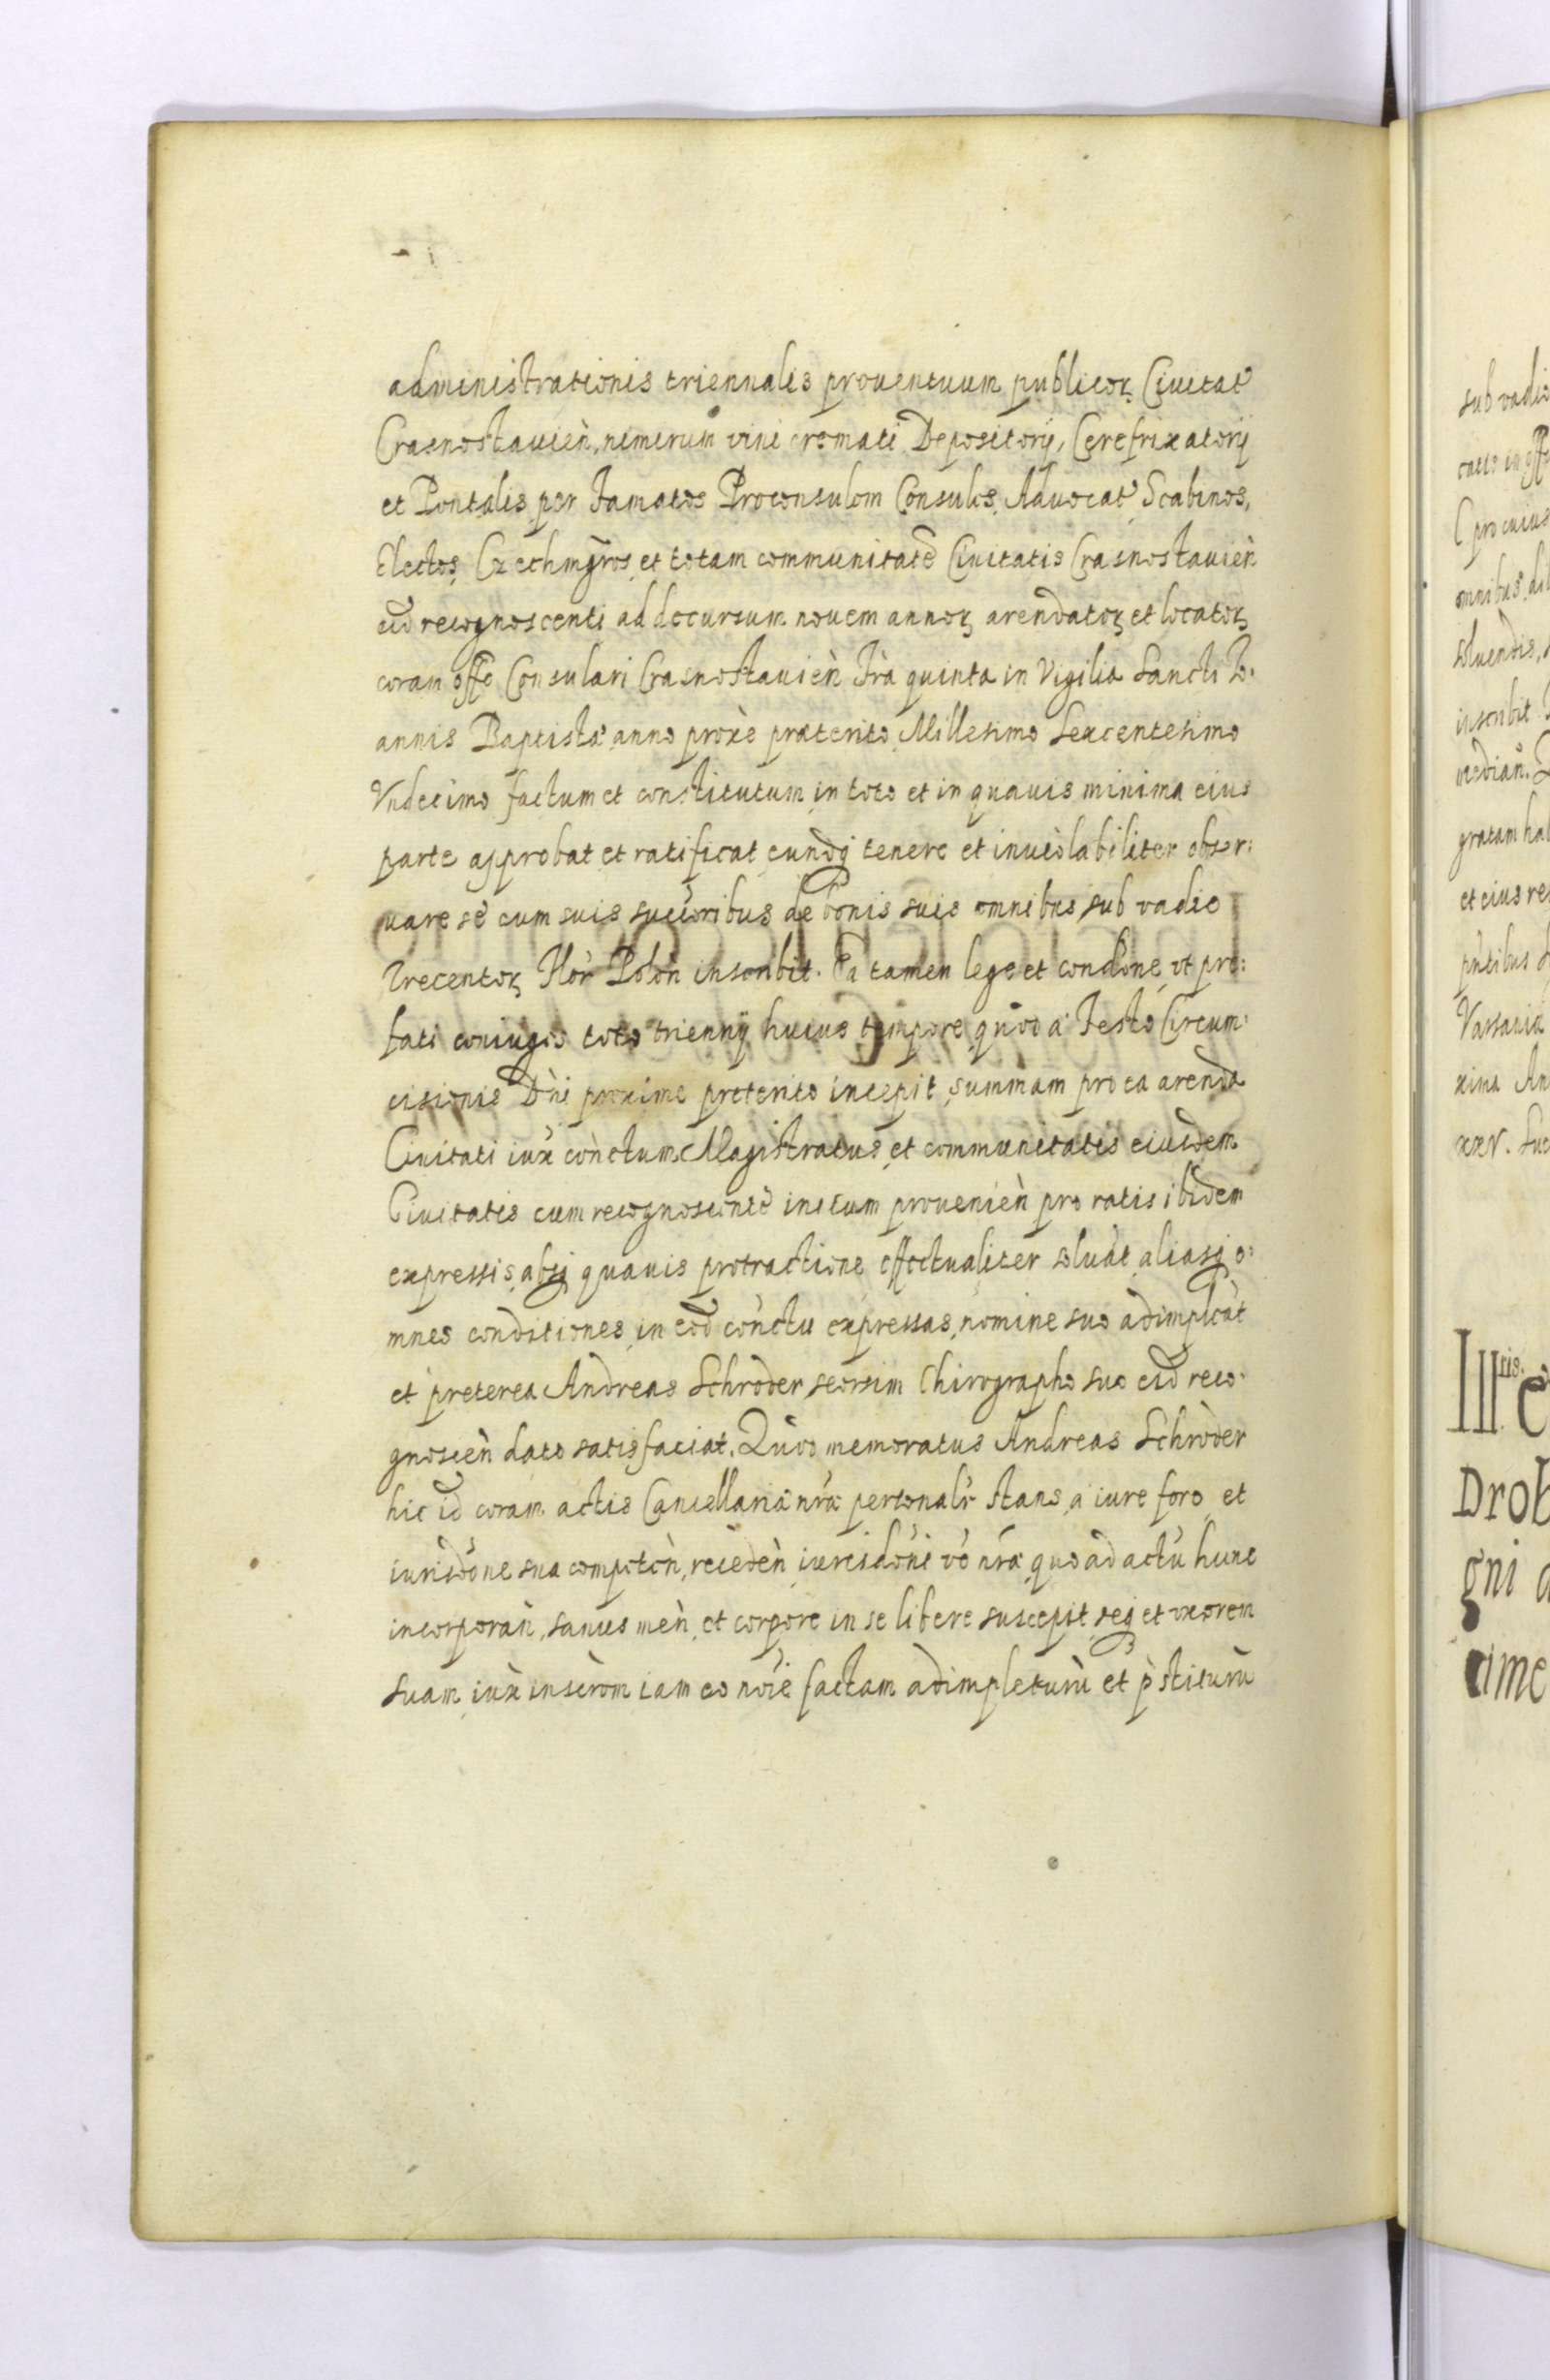 administrationis triennalis prouentuum publicoꝝ Ciuitat̛
Crasnostauien̄, nimirum vini cremati Depositorij, Cerefrixatorij
et Pontalis per Famatos Proconsulem Consules, Aduocat̛ Scabinos,
Electos, Czechmgr̄os, et totam communitatē Ciuitatis Crasnostauien̄
eid̄ recognoscenti ad decursum nouem annoꝝ arendatoꝝ et locatoꝝ
coram off̄o Consulari Crasnostauien̄ Fr̄a quinta in Vigilia Sancti Io:
annis Baptistæ anno prox̄e præterito Millesimo Sexcentesimo
Vndecimo factum et constitutum in toto et in quauis minima eius
parte approbat et ratificat eundq̄ tenere et inuiolabiliter obser:
uare se cum suis succ̄oribus de bonis suis omnibus sub vadio
Trecentoꝝ Flor̄ Polon̄ inscribit. Ea tamen lege et cond̄one, vt præ:
fati coniuges toto triennij huius tempore quod a Festo Circum:
cisionis Dn̄i proxime preterito incepit, summam pro ea arenda
Ciuitati iux̄ con̄ctum Magistratus, et communitatis eiusdem
Ciuitatis cum recognoscentē initum prouenien̄ pro ratis ibidem
expressis, absq̄ quauis protractione effectualiter soluāt, aliasq̄ o:
mnes conditiones, in eod̄ con̄ctu expressas, nomine suo adimpleāt
et preterea Andreas Schroder seorsim Chirographo suo eid̄ reco:
gnoscen̄ dato satisfaciat. Quod memoratus Andreas Schròder
hic id coram actis Cancellariæ nr̄æ personalr̄ stans, a iure foro, et
iurisd̄one sua competen̄, receden̄, iurisd̄oni vō nr̄æ, quo ad actū hunc
incorporan̄, sanus men̄, et corpore in se libere suscepit, seq̄ et vxorem
suam, iux̄ inscr̄om iam eo noīe factam adimpleturū et p̄stiturū
sub vadio
omnibus
soluendis,
inscribit
gratam hab
et eius re
Varsauiæ
xima An
Drob
gni